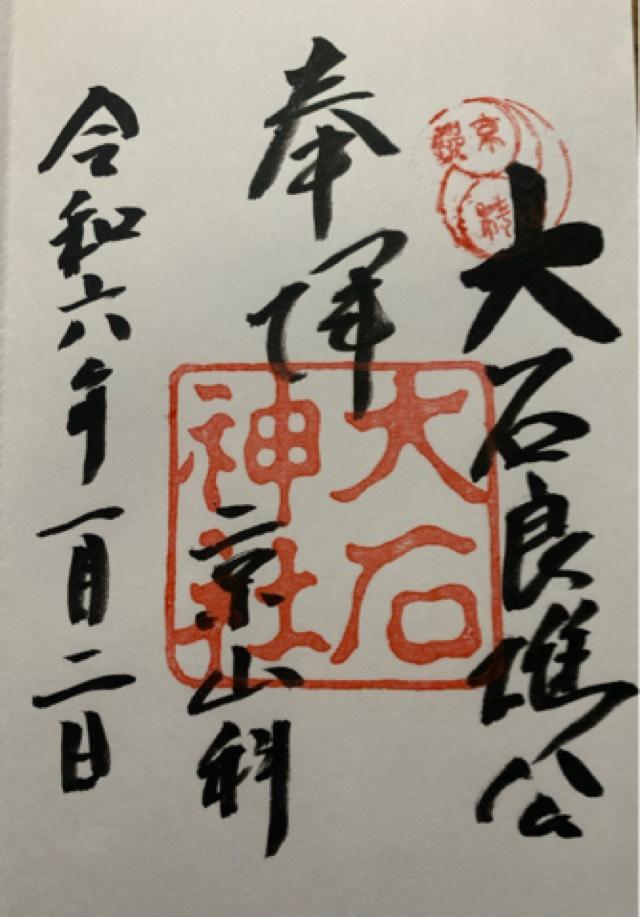 大石良雄公
奉拝
大石
神社
京山科
令和六年一月二日